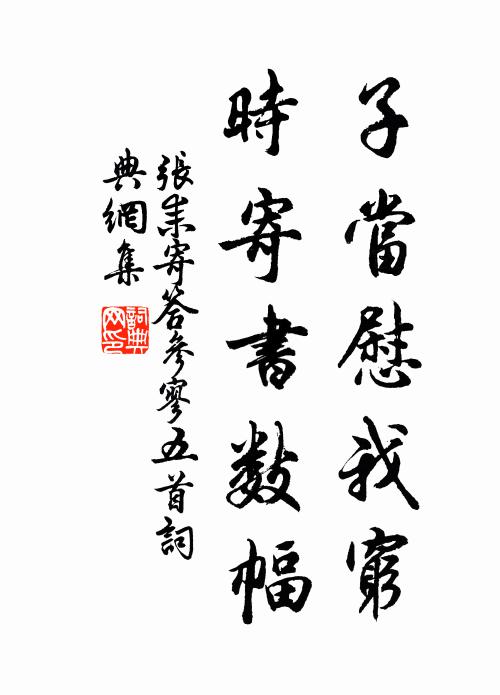 子當慰我窮
時寄書數幅
張耒寄答參寥五首詞
典網集
詞典
网印